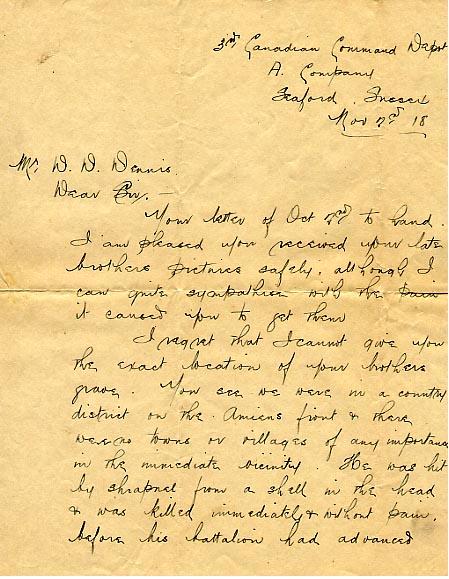 3rd Canadian Command Depot
A. Company
Seaford, Sussex
Nov 7th 18
Mr. D. D. Dennis.
Dear Sir, —
Your letter of Oct to hand.
I am pleased you received your late
brothers pictures safely, although I
can quite sympathise with the pain
it caused you to get them
I regret that I cannot give you
the exact location of your brothers
grave. You see we were in a country
district on the Amiens front & there
were no towns or villages of any importance
in the immediate vicinity. He was hit
by shrapnel from a shell in the head
& was killed immediately & without pain,
before his battalion had advanced